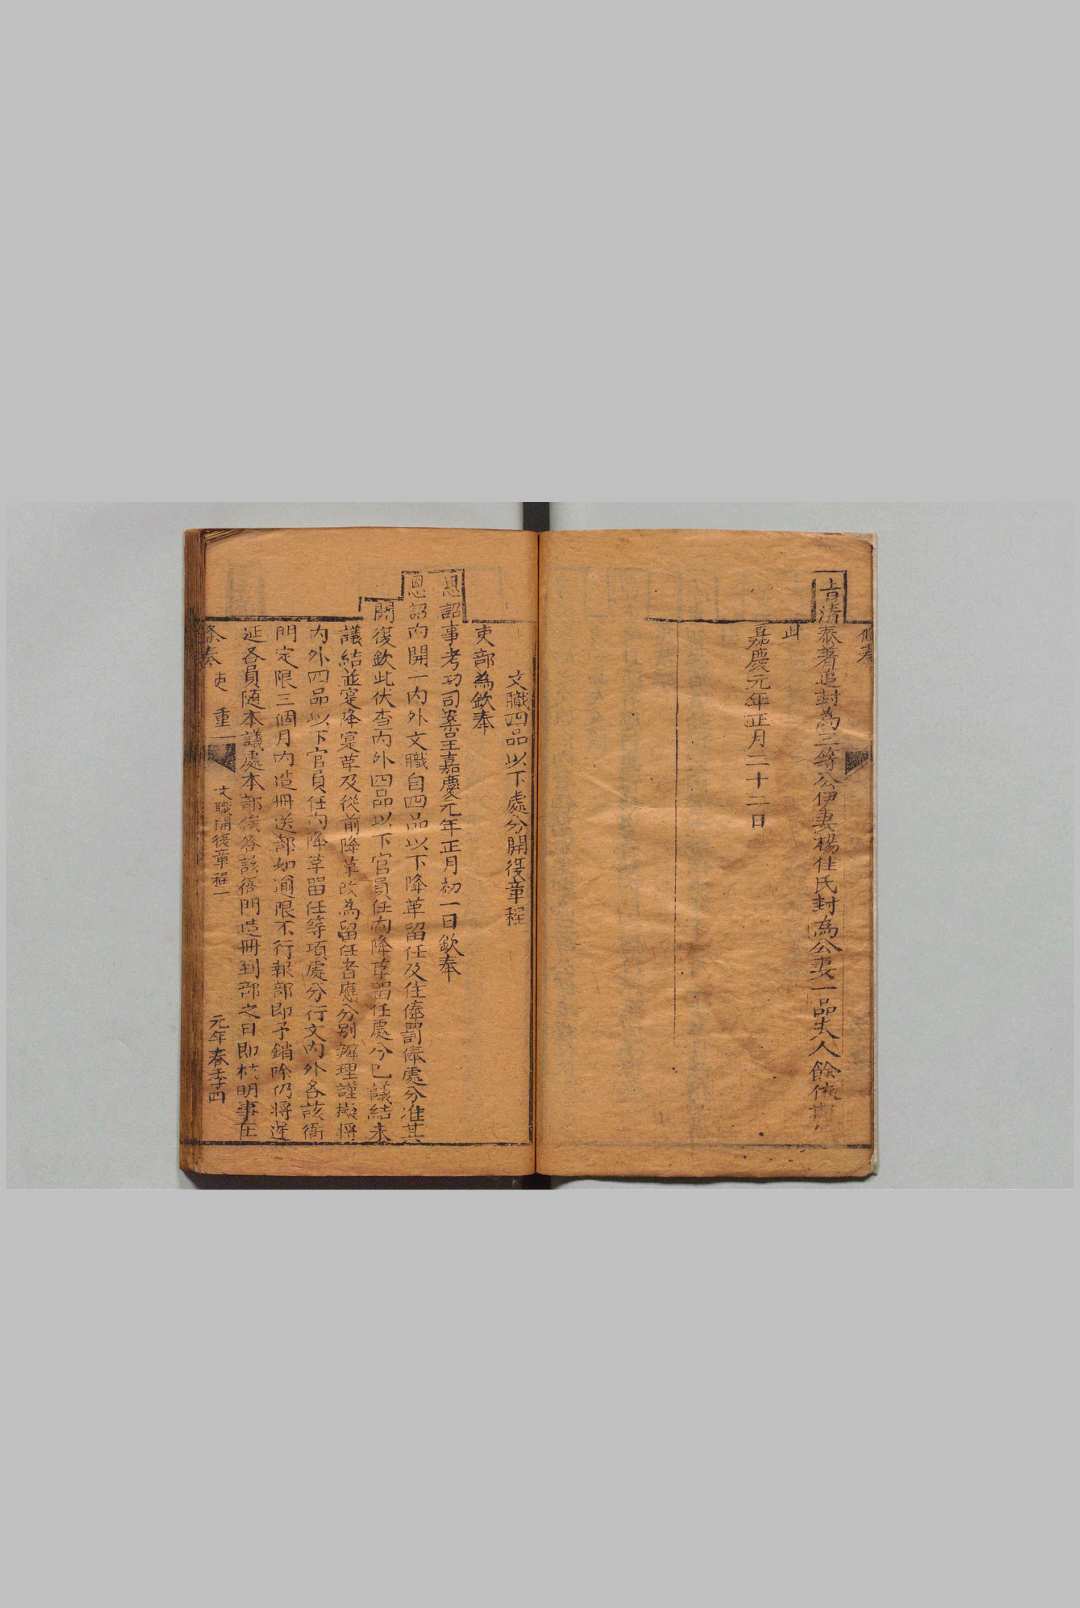 條奏
旨清泰著追封為三等公伊妻楊佳氏封為公妻一品夫人餘依
此
嘉慶元年正月二十二日
文職四品以下處分開復章程
吏部為欽奉
恩詔事考功司案呈嘉慶元年正月初一日欽奉
恩詔內開一內外文職自四品以下降革留任及住俸罰俸處分准其
開復欽此伏查內外四品以下官員任內降革留任處分已議結未
議結並寔降寔革及從前降革改為留任者應分別辦理謹擬將
內外四品以下官員任內降革留任等項處分行文內外各該衙
門定限三個月內造冊送部如逾限不行報部即予銷除仍將遲
延各員隨本議處本部俟各該衙門造冊到部之日即核明事在
條奏 吏 重一 文職開復章程一 元年春季四